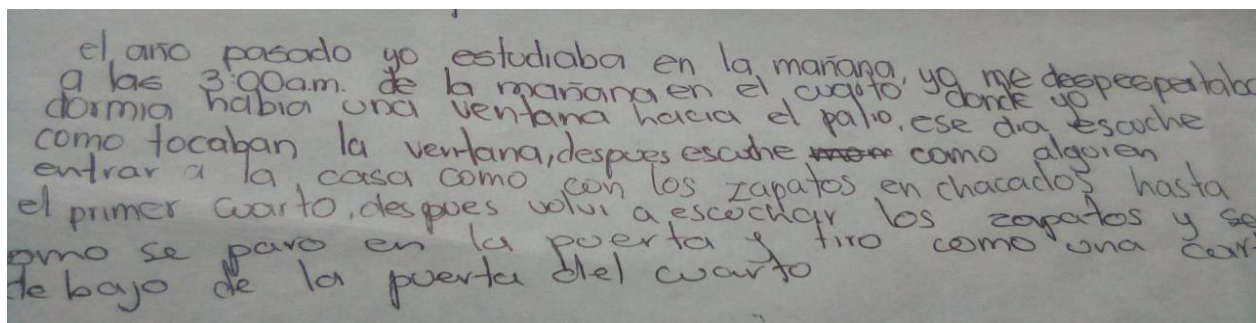 el año pasado yo estudiaba en la mañana, yo me despespertaba
a las 3:00am. de la mañana en el cuarto donde yo
dormia habia una ventana hacia el patio, ese dia escuche
como tocaban la ventana, despues escuche como alguien
entrar a la casa como con los zapatos en chacados hasta
el primer cuarto, despues volvi a escuchar los zapatos y
como se paro en la puerta y tiro como una
de bajo de la puerta del cuarto